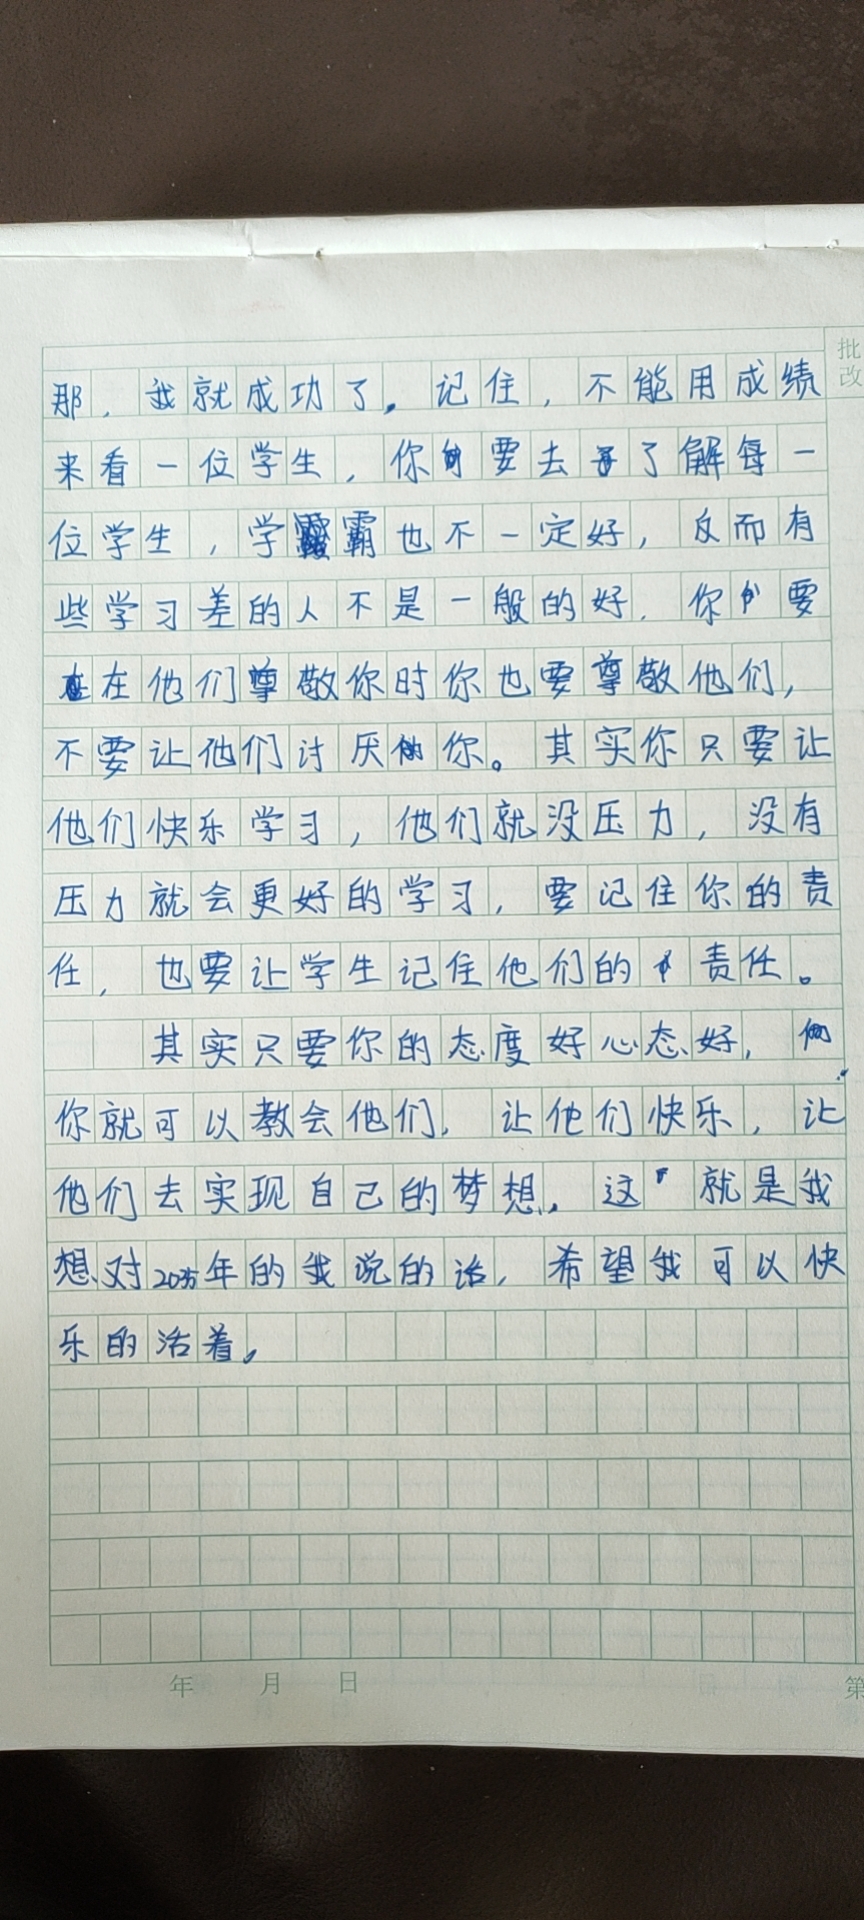 批改
那，我就成功了。记住，不能用成绩
来看一位学生，你要去了解每一
位学生，学霸也不一定好，反而有
些学习差的人不是一般的好，你要
在他们尊敬你时你也要尊敬他们，
不要让他们讨厌你。其实你只要让
他们快乐学习，他们就没压力，没有
压力就会更好的学习，要记住你的责
任，也要让学生记住他们的责任。
其实只要你的态度好心态好，
你就可以教会他们，让他们快乐，让
他们去实现自己的梦想。这就是我
想对年的我说的话，希望我可以快
乐的活着。
年 月 日 第